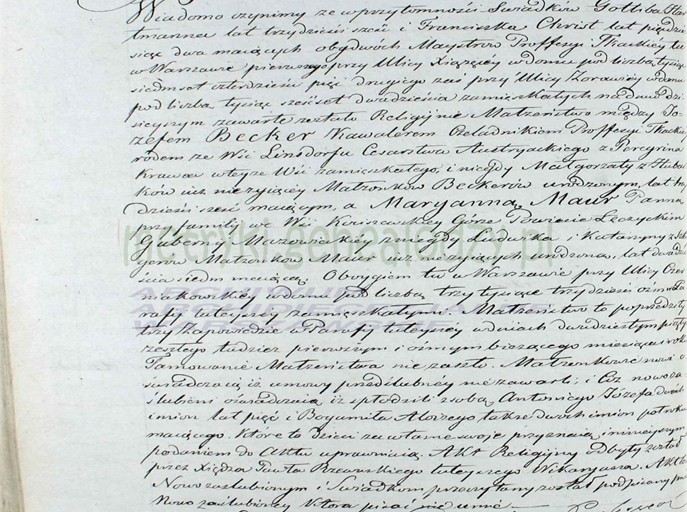 Wiadomo czynimy że w przytomności Świadków Gottliba Har
tmanna lat trzydzieści sześć i Franciszka Christ lat pięćdzie
siąt dwa mających obydwóch Maystrów Proffesyi Tkackiey tu
w Warszawie pierwszy przy Ulicy Xiążęcey w domu pod liczbą tysiąc
siedmset czterdzieści pięć drugiego zaś przy Ulicy Żorawiey w domu
pod liczbą tysiąc sześćset dwadzieścia zamieszkałych na dniu dzi
sieyszym zawarte zostało Religijne Małżeństwo między Jó
zefem Becker Kawalerem Czeladnikiem Proffesyi Tkackiey
rodem ze Wsi Linsdorfu Cesarstwa Austryjackiego z Peregrina
Krawca w teyże Wsi zamieszkałego, i niegdy Małgorzaty z
ków ich nieżyiącey Małżonków Beckerów urodzonym, lat trzy
dzieści sześć maiącym, a Maryanną Maur Panną
przy familij we Wsi Górze Powiecie Łęczyckim
Gubernij Mazowieckiey z niegdy Ludwika i Katarzyny z
Małżonków Maur już nieżyiących urodzoną, lat dwadzie
ścia siedm maiącą. Oboygiem tu w Warszawie przy Ulicy Czer
niakowskiey w domu pod liczbą trzy tysiące trzydzieści ośm Pa
rafij tuteyszey zamieszkałymi. Małżeństwo to poprzedziły
trzy Zapowiedzie w Parafij tuteyszey w dniach dwudziestym piątym
zeszłego tudzież pierwszym i ósmym bieżącego miesiąca i roku
Tamowanie Małżeństwa nie zaszło. Małżonkowie nowi o
świadczaią iż umowy przedślubney nie zawarli; i Ciż nowo za
ślubieni oświadczaią, iż spłodzili z sobą Antoniego Józefa dwóch
imion lat pięć i Bogumiła Aloizego także dwóch imion pół roku
maiącego. Które to Dzieci za własne swoje przyznaią i ninieyszym
podaniem do Aktu uprawniaią. Akt Religijny odbyty został
przez Xiędza Pawła Rzewuskiego tuteyszego Wikaryusza. Akt ten
Nowozaślubionym i Świadkom przeczytany został podpisany
Nowo zaślubioney która pisać nie umie
niezbyt.genealodzy.pl
ARCHIWUM